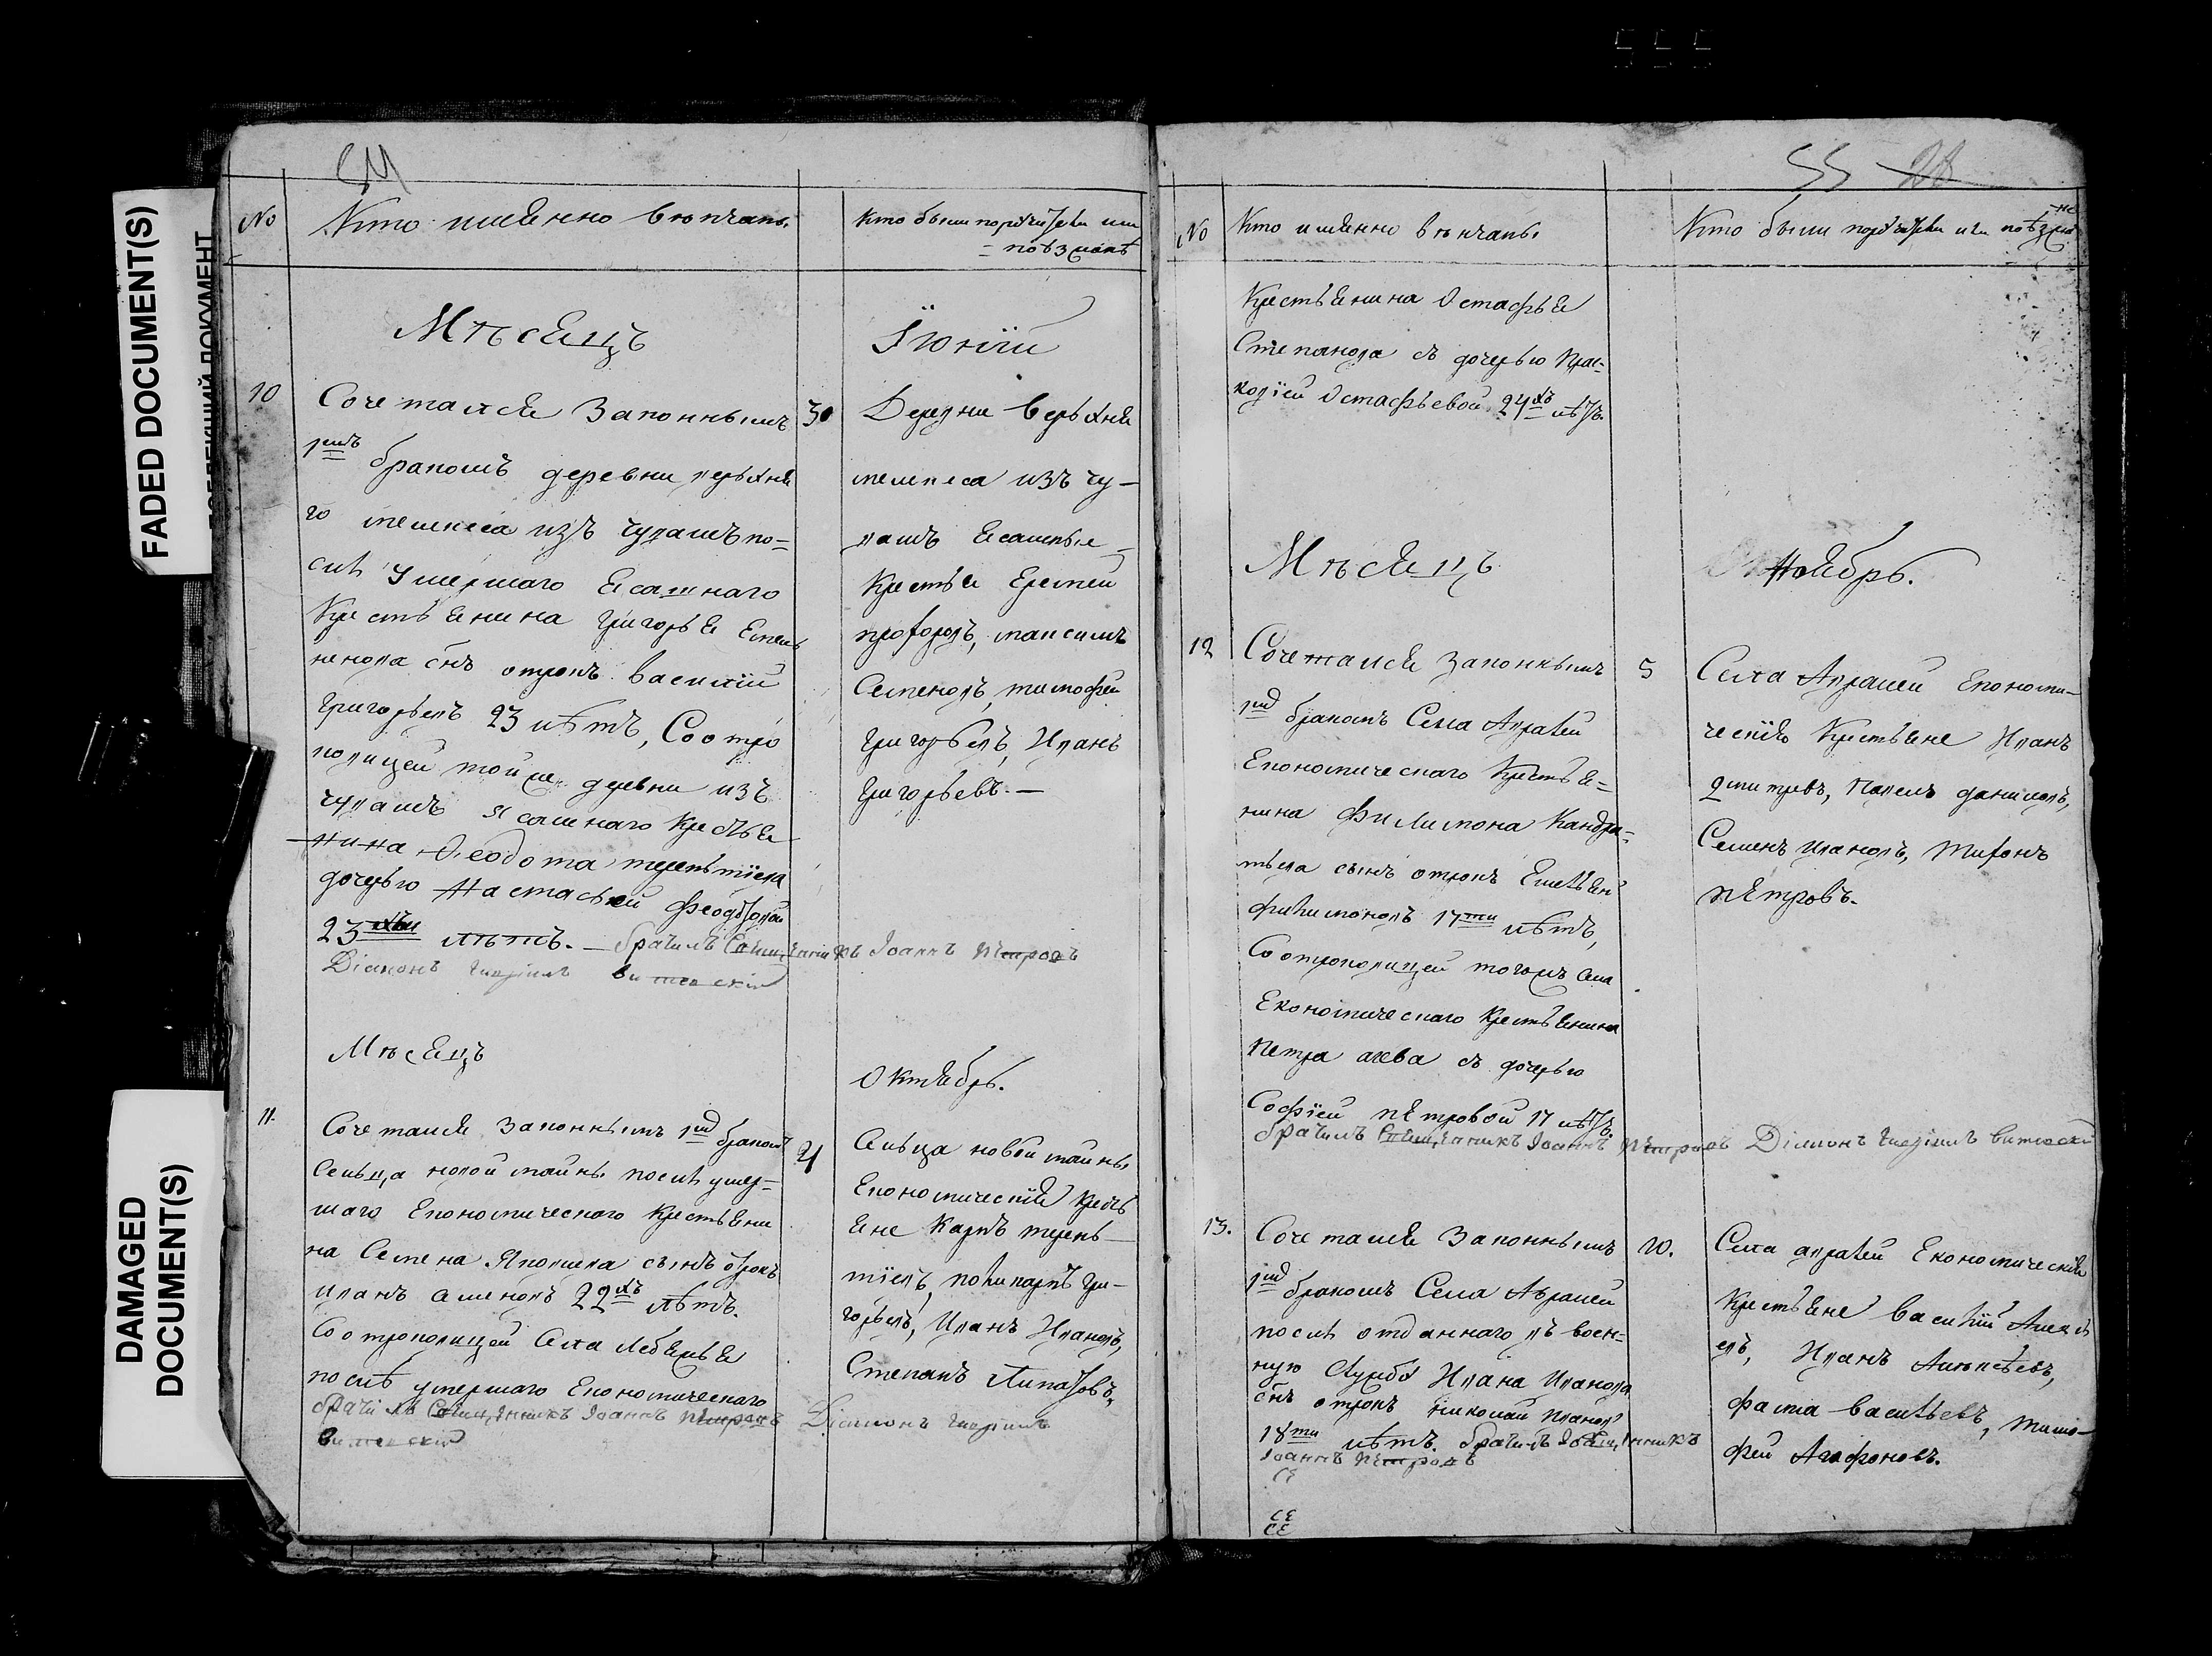 555
FADED DOCUMENT(S)
DAMAGED
DOCUMENT(S)
№
Кто имянно венчаны
Кто были поручители или
= поѣзжанѣ
Мѣсяцъ
Іюній
10
Сочетался Законнымъ
1мъ бракомъ деревни верьхня
го мелекеса изъ чувашъ по=
слѣ умершаго ясашнаго
Крестьянина Григорья Семе
ненова снъ отрокъ василій
Григорьевъ 23 лѣтъ, Соотро
ковицей тойже деревни изъ
чувашъ ясашнаго крестья
нина Феодота терентіева
дочерью Настасьей Феодотовой
23хъ лѣтъ. — брачилъ Священникъ Іоаннъ Петровъ
Діаконъ Гавріилъ
30
Деревни верьхня
мелекеса изъ чу–
вашъ ясашные
Крестья Еремей
проховъ, максимъ
Семеновъ, тимофей
Григорьевъ, Иванъ
Григорьевъ. —
Мѣсяцъ
Октябрь.
11.
Сочетался Законнымъ 1мъ бракомъ
Сельца новой майны послѣ умер=
шаго Економическаго крестьяни
на Семена Яковлева сынъ отрокъ
иванъ семеновъ 22хъ лѣтъ.
Соотроковицей Села Лебежья
послѣ умершаго Економическаго
брачилъ Священникъ Іоаннъ Петровъ Діаконъ Гавріилъ
21
Сельца новой майны
Економическія крестъ
яне Карпъ терень–
тіевъ, поликарпъ гри–
горьевъ, Иванъ Ивановъ,
Степанъ Липатовъ.
55 28
№
Кто имянно венчаны
Кто были поручители или поѣзжане
Крестьянина Остафья
Степанова съ дочерью Прас=
ковіей Остафьевой 24хъ лѣтъ.
Мѣсяцъ
Ноябрь.
12
Сочетался Законнымъ
1мъ бракомъ Села Авралей
Економическаго Крестья=
нина Филимона Кандра=
тьева сынъ отрокъ Емельянъ
филимоновъ 17ти лѣтъ,
Соотроковицей тогожъ села
Економическаго Крестьянина
Петра съ дочерью
Софіей Петровой 17 лѣтъ.
брачилъ Священникъ Іоаннъ Петровъ Діаконъ Гавріилъ
5
Села Авралей Економи–
ческія Крестьяне Иванъ
дмитревъ, Павелъ даниловъ,
Семенъ ивановъ, Тихонъ
Петровъ.
13.
Сочетался Законнымъ
1мъ бракомъ Села Авралей
послѣ отданнаго въ воен=
ную Службу Ивана Иванова
снъ отрокъ николай Ивановъ
18ти лѣтъ. брачилъ Священникъ
Іоаннъ Петровъ
20.
Села авралей Економическія
Крестьяне василій Алексѣ
евъ, Иванъ Алексѣевъ,
фома васильевъ, Тимо–
фей Агафоновъ.